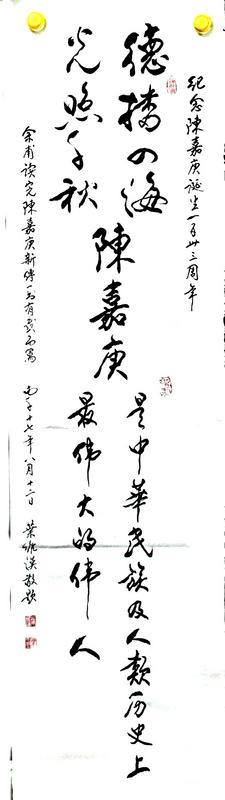 紀念陳嘉庚誕生一百卌三周年
德播四海
光照千秋
陳嘉庚
是中華民族及人類历史上
最伟大的伟人
余甫读完陳嘉庚新傳一书有感而寫
十七年八月十二日